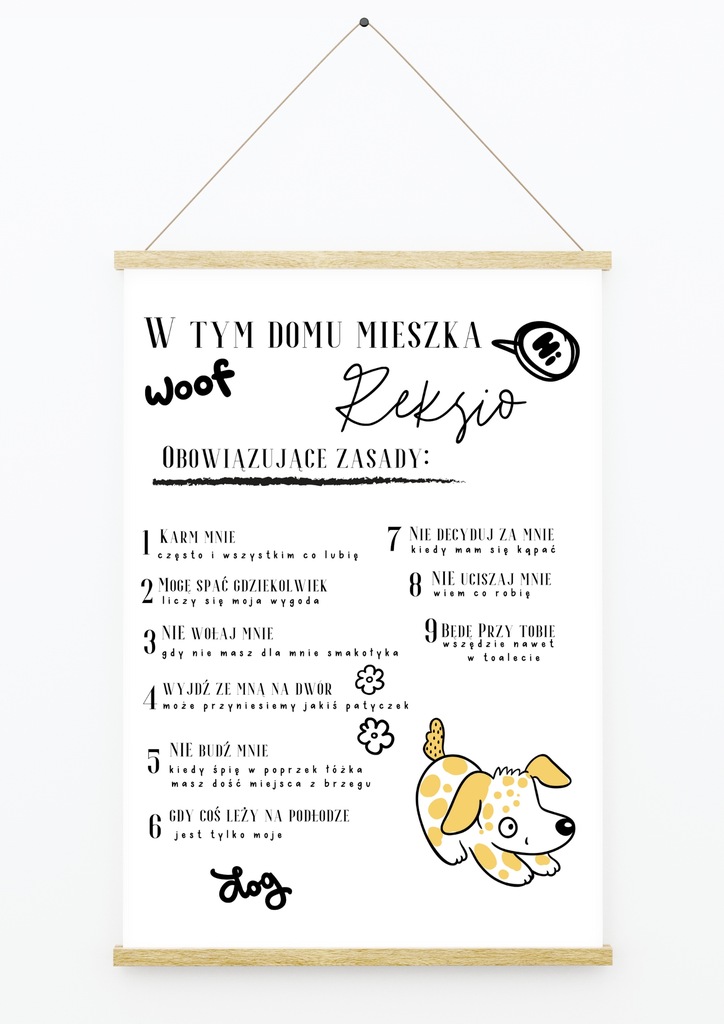 W TYM DOMU MIESZKA
Hi
woof
Reksio
OBOWIĄZUJĄCE ZASADY:
1 KARM MNIE
często i wszystkim co lubię
2 MOGĘ SPAĆ GDZIEKOLWIEK
liczy się moja wygoda
3 NIE WOŁAJ MNIE
gdy nie masz dla mnie smakołyka
4 WYJDŹ ZE MNĄ NA DWÓR
może przyniesiemy jakiś patyczek
5 NIE BUDŹ MNIE
kiedy śpię w poprzek łóżka
masz dość miejsca z brzegu
6 GDY COŚ LEŻY NA PODŁODZE
jest tylko moje
7 NIE DECYDUJ ZA MNIE
kiedy mam się kąpać
8 NIE UCISZAJ MNIE
wiem co robię
9 BĘDĘ PRZY TOBIE
wszędzie nawet
w toalecie
dog